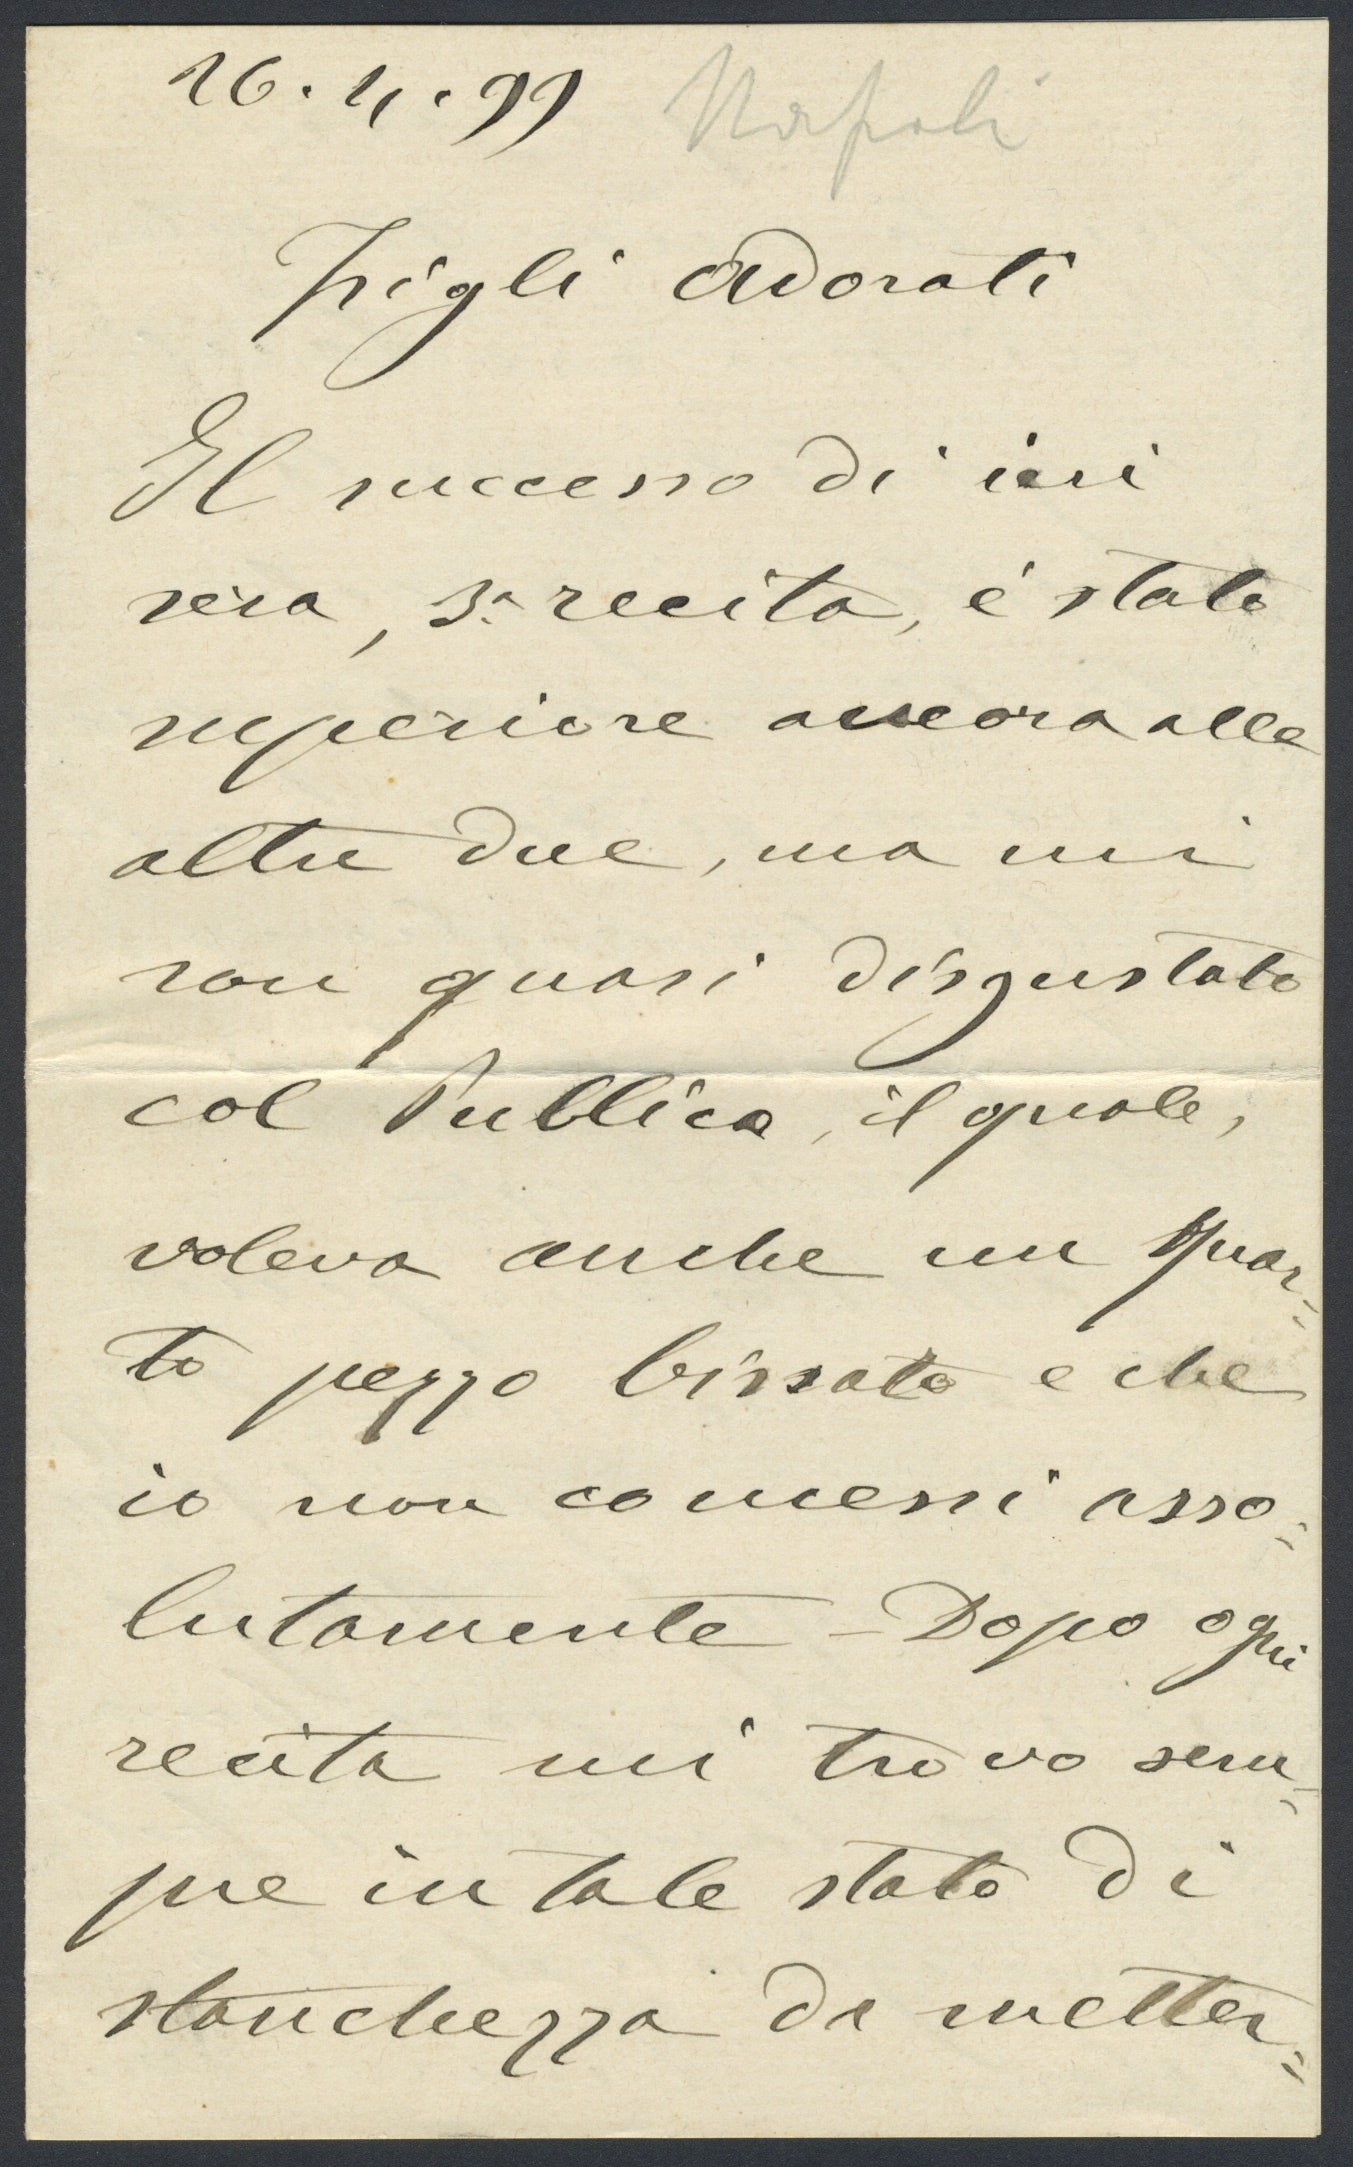 26.4.99 Napoli
Figli adorati
Il successo di ieri
sera, 3ª recita, é stato
superiore ancora alle
altre due, ma mi
son quasi disgustato
col Pubblico, il quale,
voleva anche un quar=
to pezzo bissato e che
io non concessi asso=
lutamente - Dopo ogni
recita mi trovo sem=
pre in tale stato di
stanchezza da metter=